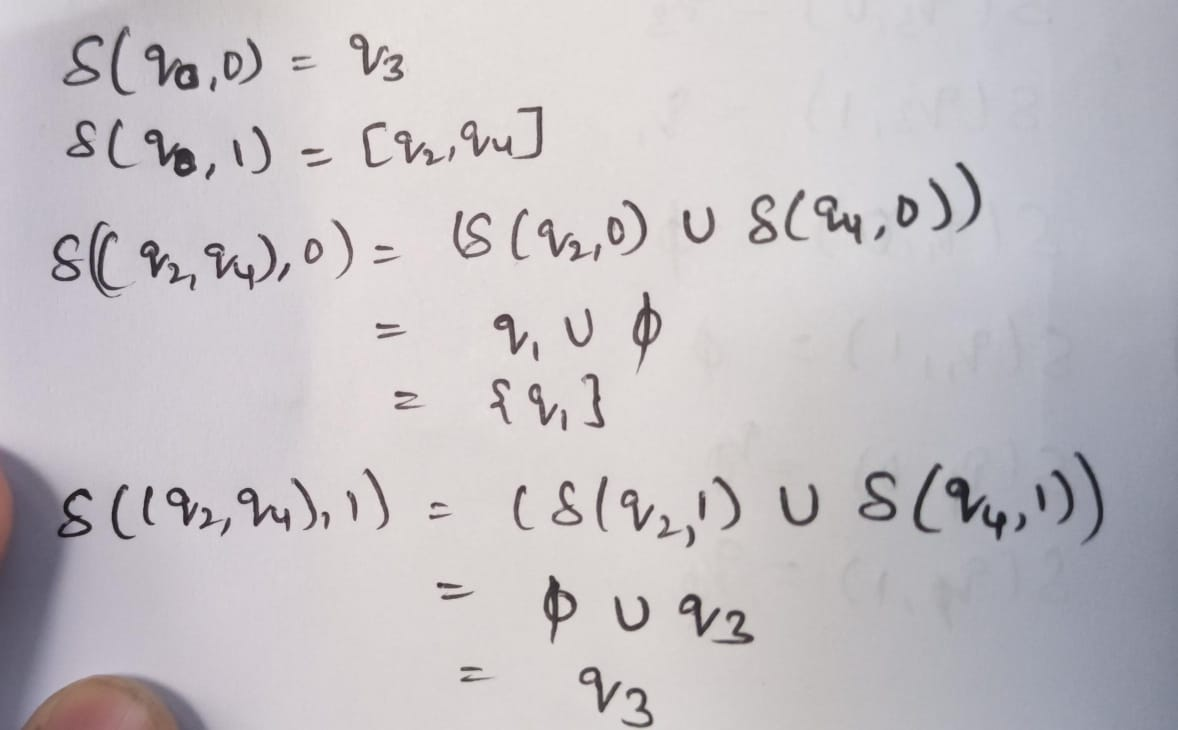 δ(q₀,0) = q₃
δ(q₀,1) = [q₂,q₄]
δ((q₂,q₄),0) = (δ(q₂,0) ∪ δ(q₄,0))
= q₁ ∪ ϕ
= {q₁}
δ((q₂,q₄),1) = (δ(q₂,1) ∪ δ(q₄,1))
= ϕ ∪ q₃
= q₃